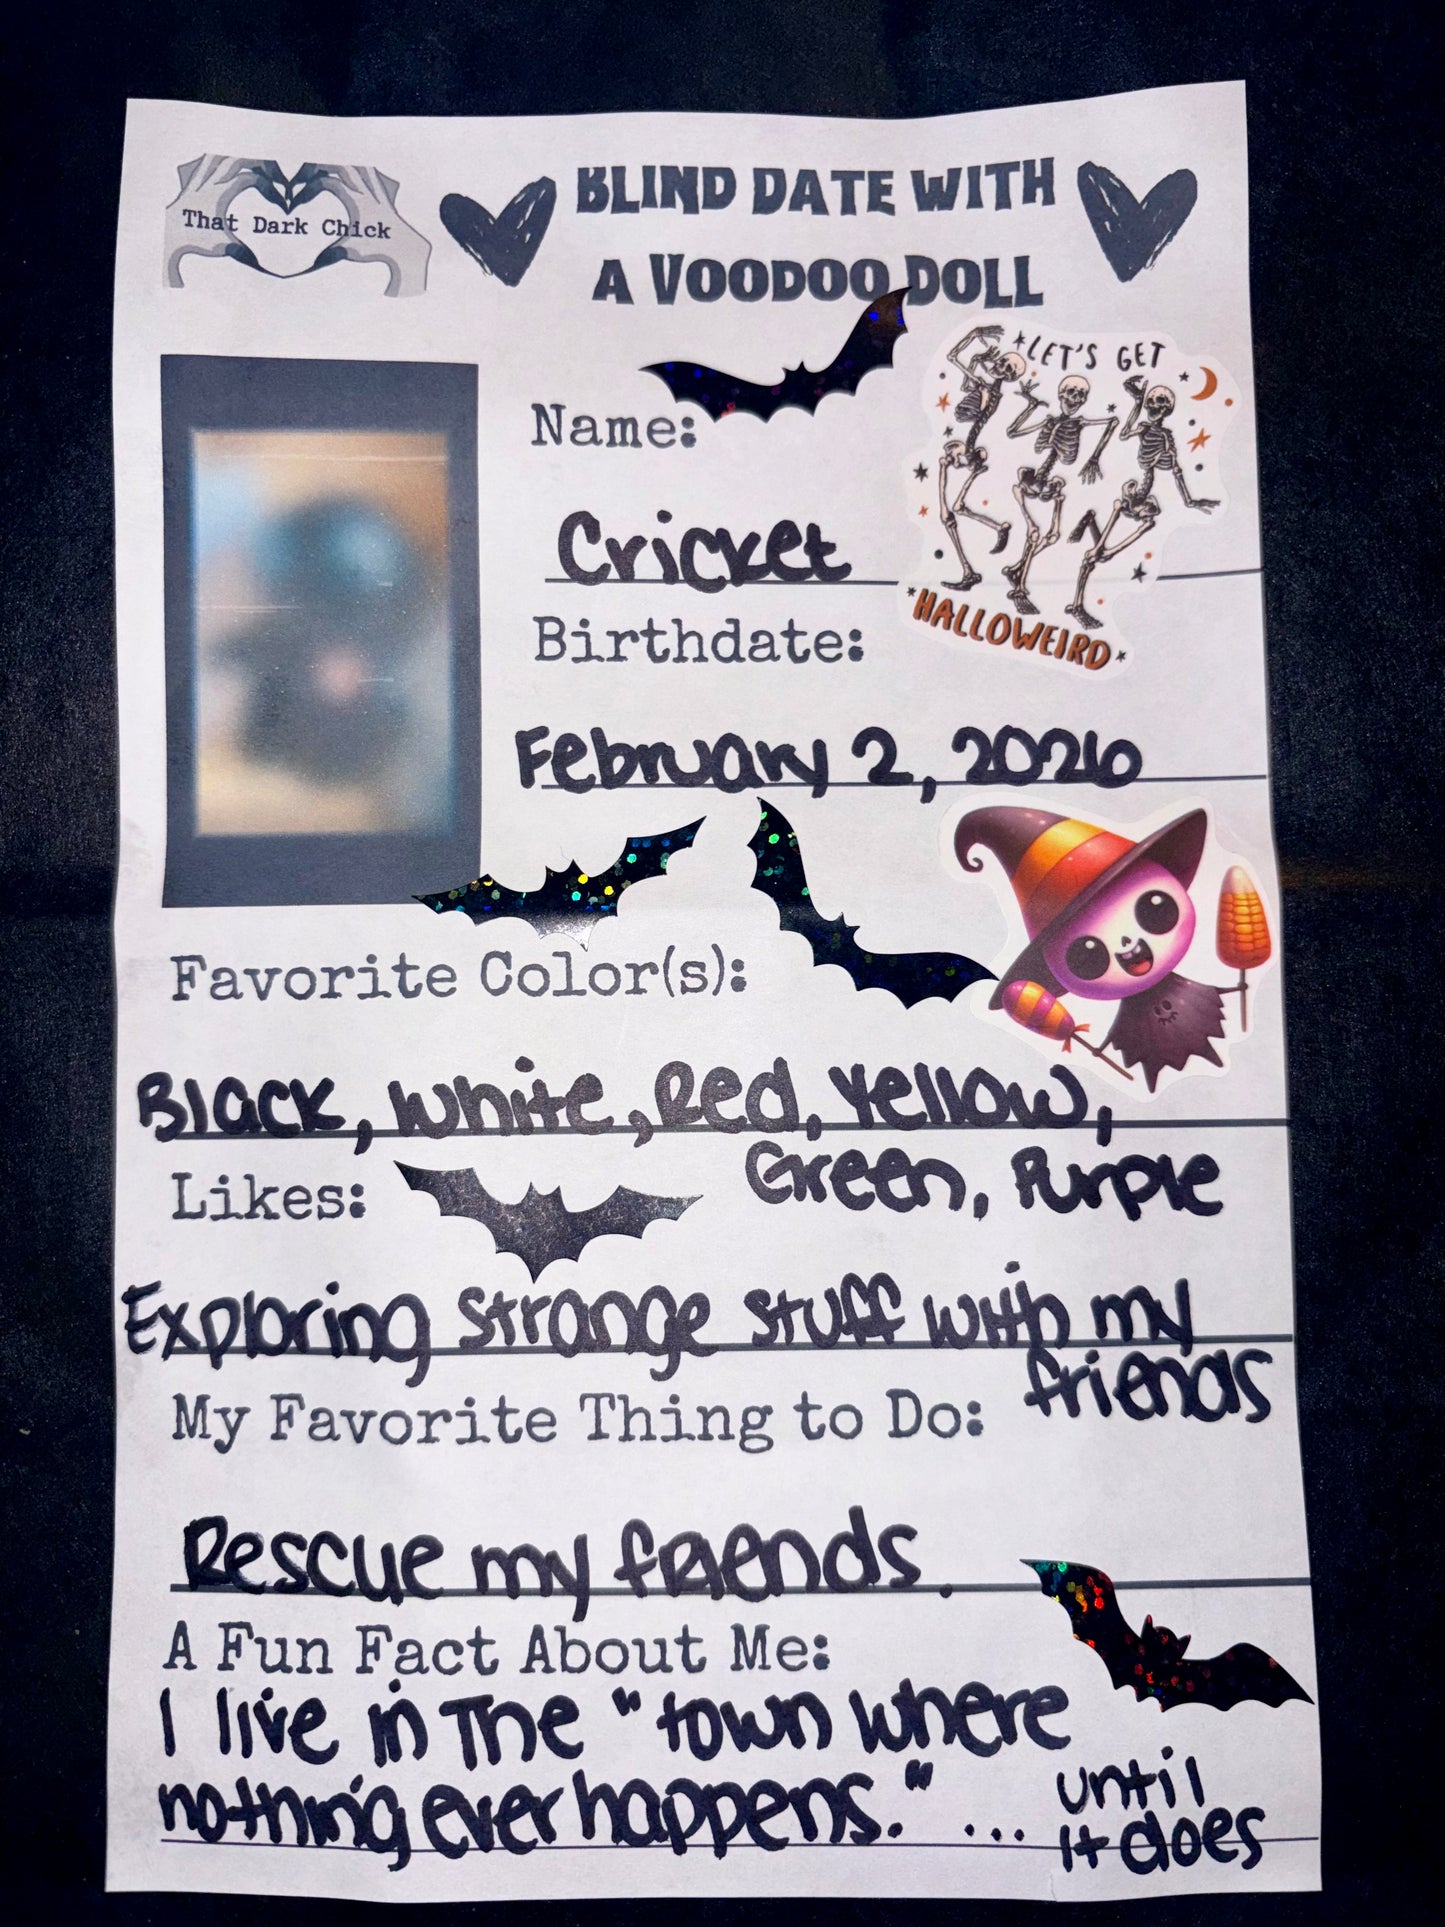 That Dark Chick
BLIND DATE WITH
A VOODOO DOLL
LET'S GET
HALLOWEIRD
Name:
Cricket
Birthdate:
February 2, 2026
Favorite Color(s):
Black, White, Red, Yellow,
Green, Purple
Likes:
Exploring strange stuff with my
friends
My Favorite Thing to Do:
Rescue my friends.
A Fun Fact About Me:
I live in The "town where
nothing ever happens." ... until
it does